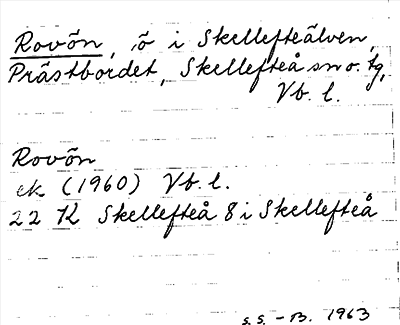 Rovön, ö i Skellefteälven,
Prästbordet, Skellefteå sn o. tg,
Vb. l.
Rovön
ek (1960) Vb. l.
22 K Skellefteå 8 i Skellefteå
s.s. - B. 1963